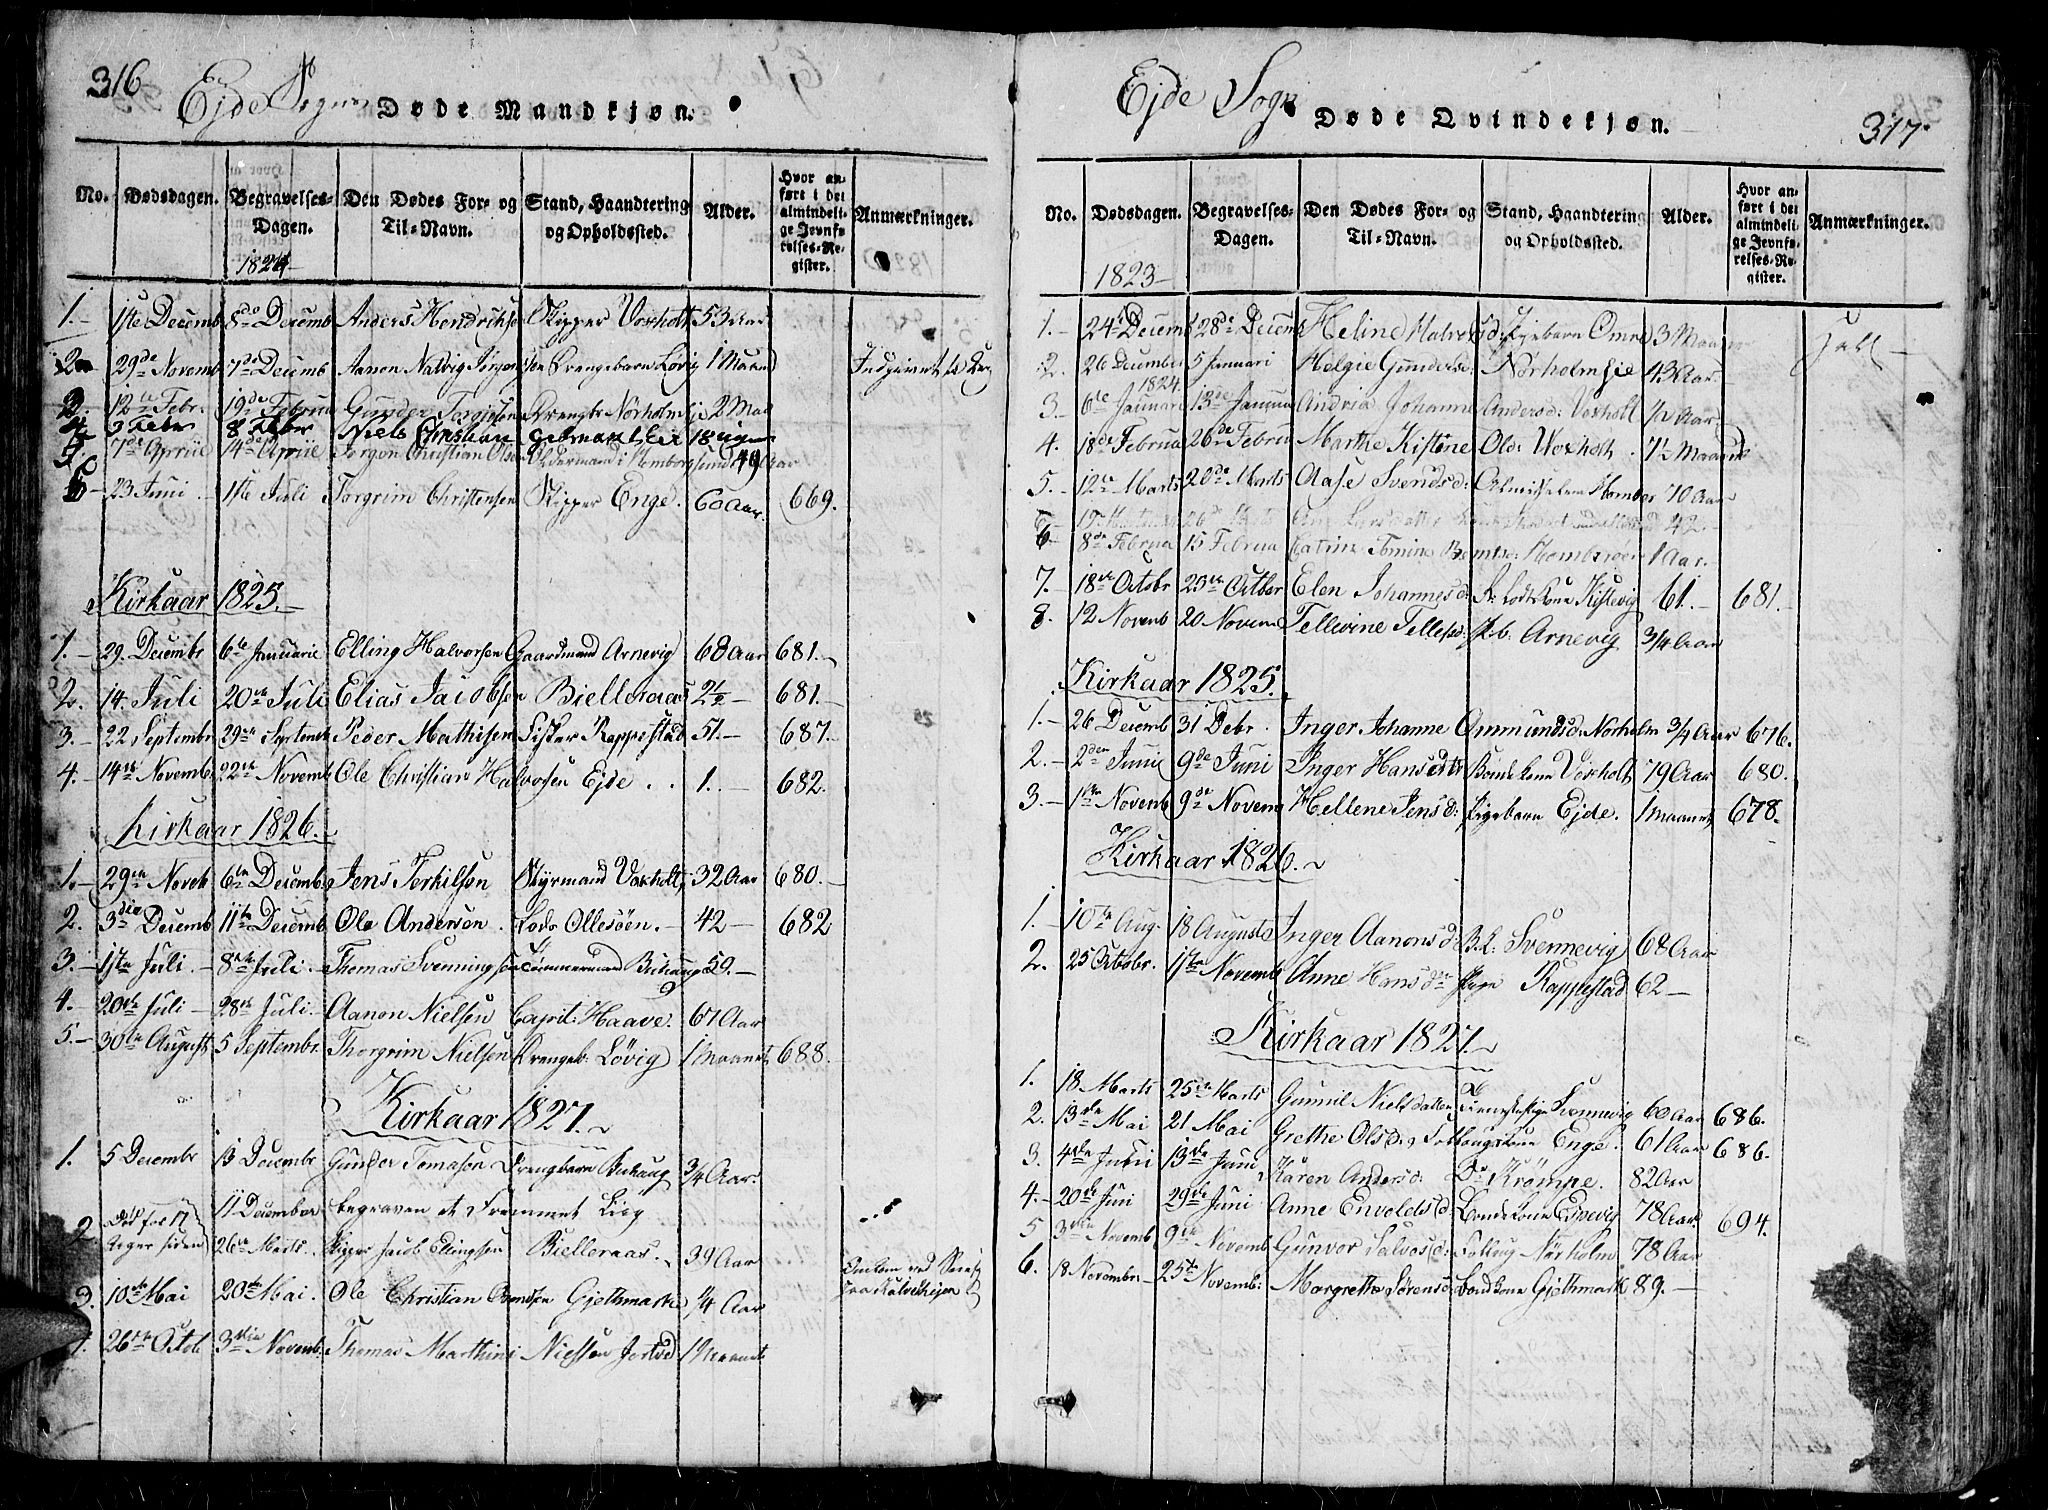 316
Ejde Sogn
Døde Mandkjøn.
No. Dødsdagen. Begravelses-Dagen. Den Dødes For- og Til-Navn. Stand, Haandtering og Opholdssted. Alder. Hvor anført i det almindelige Jevnførelses-Register. Anmærkninger.
1824
1. 1ste Decemb 8de Decemb Anders Hendriksen Skipper Voxholt 53 Aar
2 29de Novemb 7de Decemb Aanon Natvig Jørgensen Drengebarn Løvig 1 Maan
3. 12te Febr. 19de Februa Gunder Torgjesen Drengbr Norholm 2 Maa
4 3 Febr 8 Febr Niels Christian 18
5 7de April 14de April Jørgen Christian Olsen Oldermand i Homborsund 49 Aar
6 23 Juni 1ste Juli Torgrim Christensen Skipper Enge. 60 Aar. 669.
Kirkaar 1825.
1. 29. Decembr 6te Januarie Elling Halvorsen Gaardmand Arnevig 68 Aar 681.
2. 14. Juli 20de Juli Elias Jacobsen Bielleraas 2½ 681.
3. 22 Septembr 29de Septemb Peder Mathisen Fisker Rappestad 51. 687.
4. 14de Novembr 22de Novemb Ole Christian Halvorsen Ejde . . 1. 682.
Kirkaar 1826.
1. 29de Noveb 6te Decembr Jens Terkilsen Styrmand Voxholt 32 Aar 680.
2. 3die Decemb 11te Decemb Ole Andersen. Lods Ollesøen. 42 682
3. 1ste Juli. 8de Juli. Thomas Svenningsen Tømmermand Buhaug 59.
4. 20de Juli 28de Juli. Aanon Nielsen Capit: Haave. 67 Aar
5. 30te August 5 Septembr. Thorgrim Nielsen Drengeb. Løvig 1 Maanet 688.
Kirkaar 1827.
1. 5 Decembr 13 Decembr Gunder Tomasen Drengbarn Buhaug ¾ Aar.
11 December begraven et Fremmet Liig
2 Død for 17 Uger siden 26de Marts. Skipper Jacob Ellingsen Bielleraas. 39 Aar
3. 10de Mai 20de Mai. Ole Christian Berntsen Gjethmarke ¼ Aar Omkom ved
4. 26de Octob 3die Novemb: Thomas Marthini Nielsen 1 Maanet
317.
Ejde Sogn
Døde Qvindekjøn.
No. Dødsdagen. Begravelses-Dagen. Den Dødes For- og Til-Navn. Stand, Haandtering og Opholdssted. Alder. Hvor anført i det almindelige Jevnførelses-Register. Anmærkninger.
1823
1. 24de Decemb 28de Decemb Heline Halvorsd: Pigebarn Omre 3 Maaner
2. 26 December 5 Januari Helgie Gundersd: Norholm 43 Aar.
1824.
3 6te Januari 13de Januar Andrea Johanne Andersd: Voxholt ½ Aar
4. 18de Februa 26de Februa Marthe Kistine Olsd: Voxholt. 7½ Maaned
5. 12te Marts 20de Marts Aase Svendsd: Almislem Hombor 70 Aar
19 Marts 26de Marts Larsdatter 42.
6 8de Februa 15 Februa Catrine Tomine Berntsd: Homborøe 1 Aar.
7. 18de Octobr 25de Octbr Elen Johannesd: Lodskone Kistevig 61. 681.
8. 12 Novemb 20 Novem Tellevine Tellefsd: Pb. Arnevig ¾ Aar
Kirkaar 1825.
1. 26 Decemb 31 Debr. Inger Johanne Ommundsd: Norholm ¾ Aar 676.
2. 2den Juni 9de Juni Inger Hansdtr Bondekone Voxholt 79 Aar 680.
3. 1ste Novemb 9de Novem Hellene Jensd: Pigebarn Ejde. 1 Maanet 678.
Kirkaar 1826.
1. 10de Aug. 18 Auguste Inger Aanonsd: B.K. Svennevig 68 Aar
2. 25 Octobr. 1ste Novemb Anne Hansdtr Pige Rappestad 62
Kirkaar 1827.
1. 18 Marts 25de Marts Gunnil Nielsdatter Svennevig 60 Aar 686.
2. 13de Mai 21 Mai Grethe Olsd: Enge. 61 Aar 686.
3. 4de Juni 13de Juni Karen Andersd: Do Krømpe. 82 Aar
4. 20de Juni 29de Juni Anne Envoldsd: Bondekone Espevig 78 Aar 694.
5 3die Novemb 9de Novemb Gunvor Salvesd: Norholm 78 Aar
6. 18 Novembr 25de Novemb: Margrethe Sørensd: Bondkone Gjethmark 89.